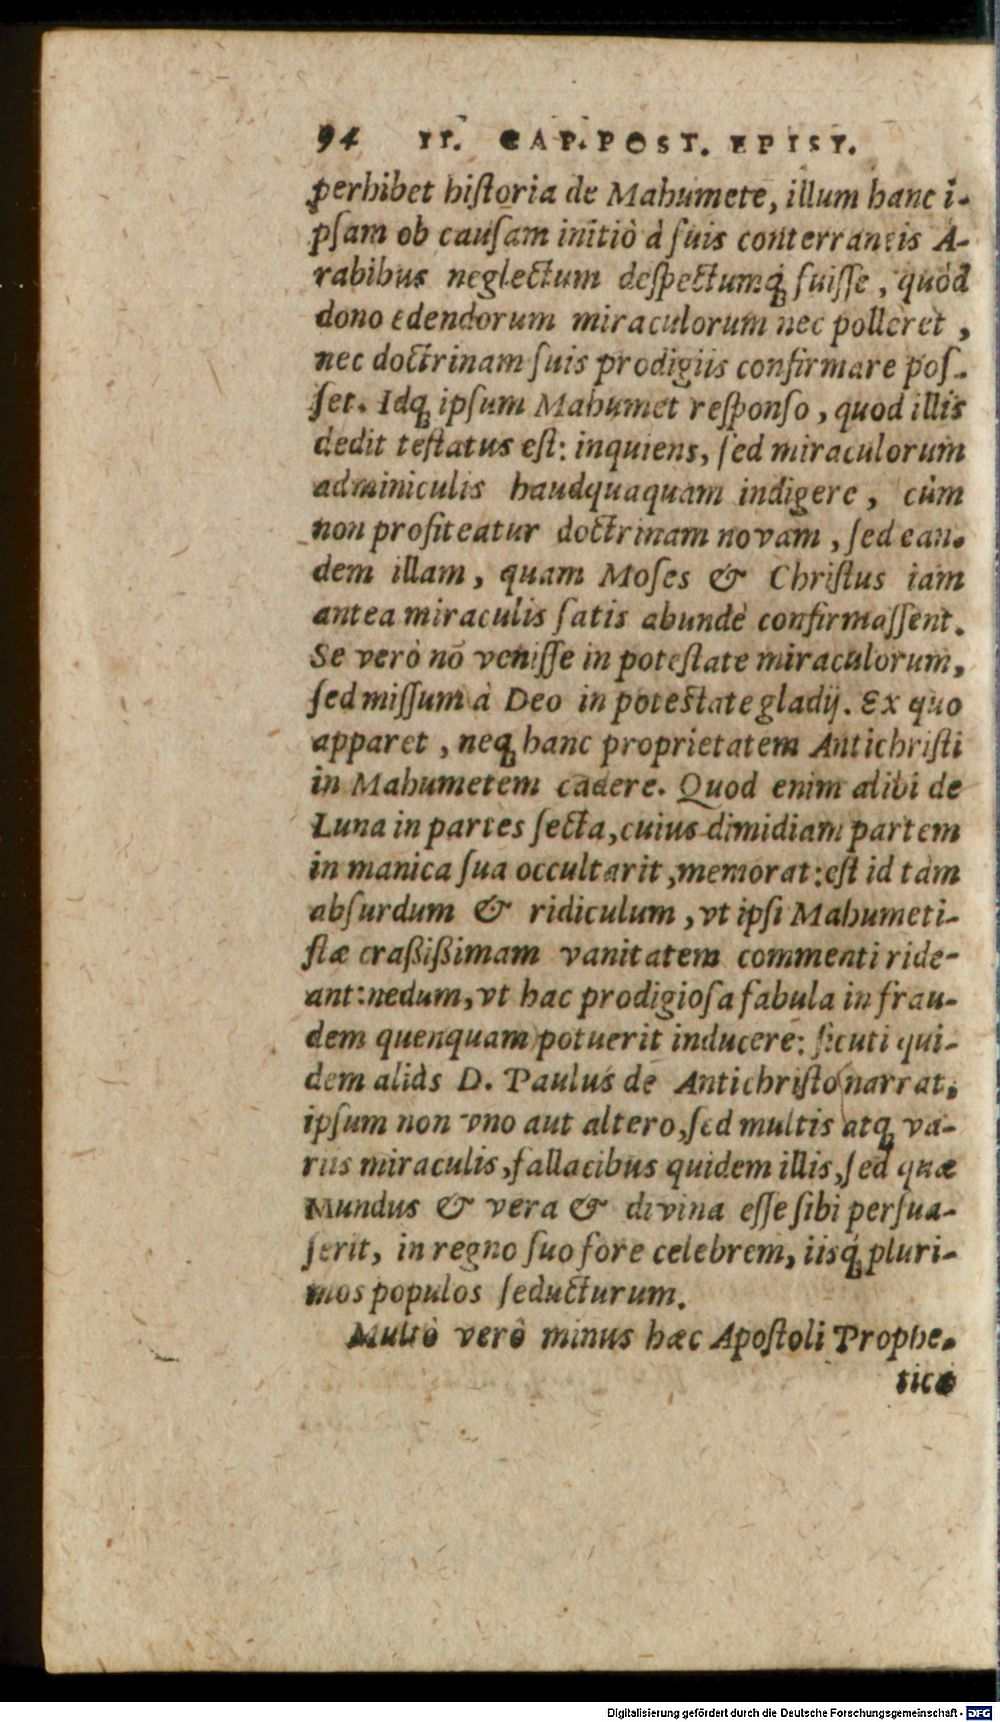 94 II. CAP. POST. EPIST.
perhibet hiſtoria de Mahumete, illum hanc i-
pſam ob cauſam initiò à ſuis conterraneis A-
rabibus neglectum deſpectumq́; fuiſſe, quòd
dono edendorum miraculorum nec polleret,
nec doctrinam ſuis prodigiis confirmare poſ-
ſet. Idq; ipſum Mahumet reſponſo, quod illis
dedit teſtatus eſt: inquiens, ſed miraculorum
adminiculis haudquaquam indigere, cùm
non profiteatur doctrinam novam, ſed ean-
dem illam, quam Moſes & Chriſtus iam
antea miraculis ſatis abundè confirmaſſent.
Se verò nō veniſſe in poteſtate miraculorum,
ſed miſſum à Deo in poteſtate gladij. Ex quo
apparet, neq; hanc proprietatem Antichriſti
in Mahumetem cadere. Quod enim alibi de
Luna in partes ſecta, cuius dimidiam partem
in manica ſua occultarit, memorat: eſt id tam
abſurdum & ridiculum, vt ipſi Mahumeti-
ſtæ craßißimam vanitatem commenti ride-
ant: nedum, vt hac prodigioſa fabula in frau-
dem quenquam potuerit inducere: ſicuti qui-
dem aliàs D. Paulus de Antichriſto narrat,
ipſum non vno aut altero, ſed multis atq; va-
riis miraculis, fallacibus quidem illis, ſed quæ
Mundus & vera & divina eſſe ſibi perſua-
ſerit, in regno ſuo fore celebrem, iisq́; pluri-
mos populos ſeducturum.
Multò verò minus hæc Apoſtoli Prophe-
tica
Digitalisierung gefördert durch die Deutsche Forschungsgemeinschaft - DFG